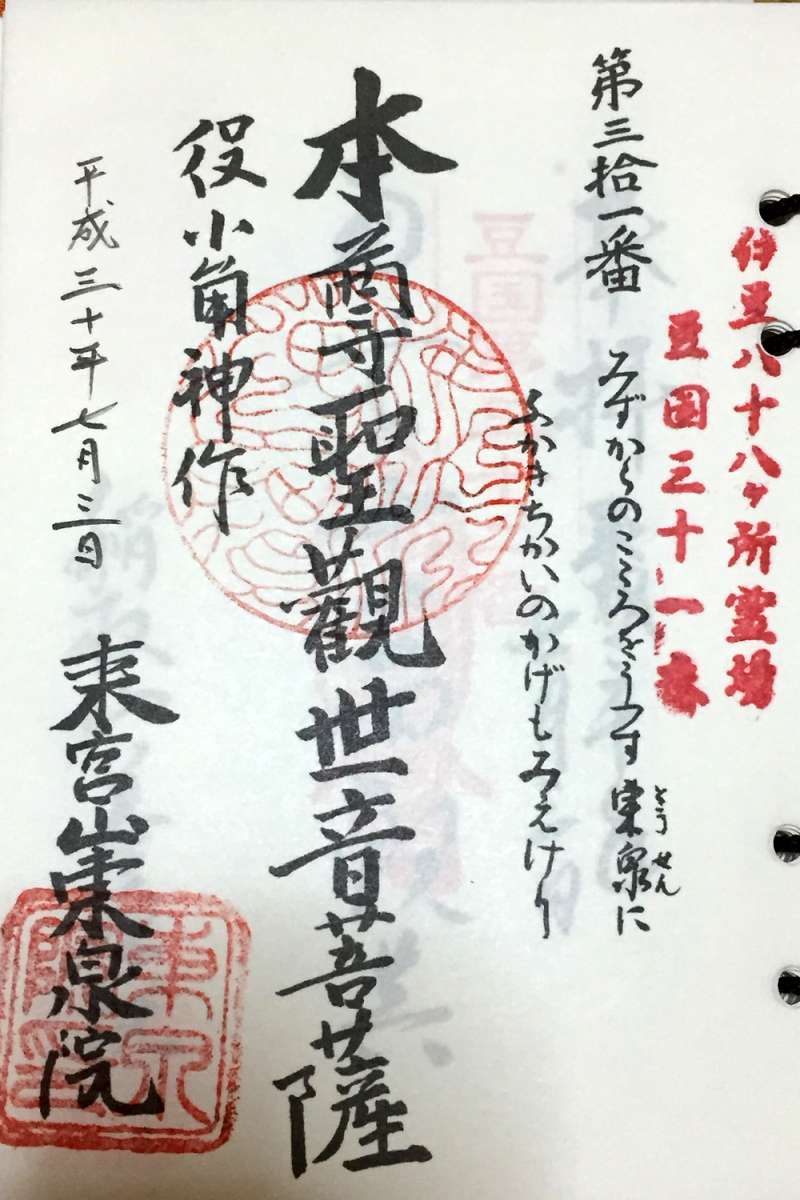 伊豆八十八ヶ所霊場
豆国三十一番
第三拾一番
みずからのこころをうつす東泉に
とうせん
ふかきちかいのかげもみえけり
本尊聖觀世音菩薩
役小角神作
平成三十年七月三日
来宮山東泉院
東泉
院